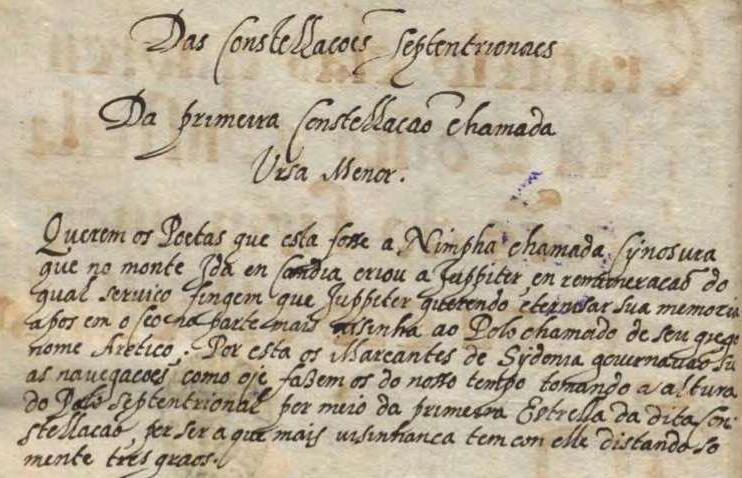 Das Constellacoẽs Septentrionaes
Da primeira Constellacaõ chamada
Ursa Menor.
Querem os Poetas que esta fosse a Nimpha chamada Cynosura
que no monte Ida en Candia criou a Juppiter, en remuneracaõ do
qual servico fingem que Juppiter querendo eternisar sua memoria
a pos em o Ceo na parte mais visinha ao Polo chamado de seu grego
nome Arctico. Por esta os Mareantes de Sydonia governavaõ su
as navegacoẽs, como oje fazem os do nosso tempo tomando a altura
do Polo Septentrional por meio da primeira Estrella da dita Con-
stellacaõ, por ser a que mais visinhanca tem con elle distando so
mente tres graos.